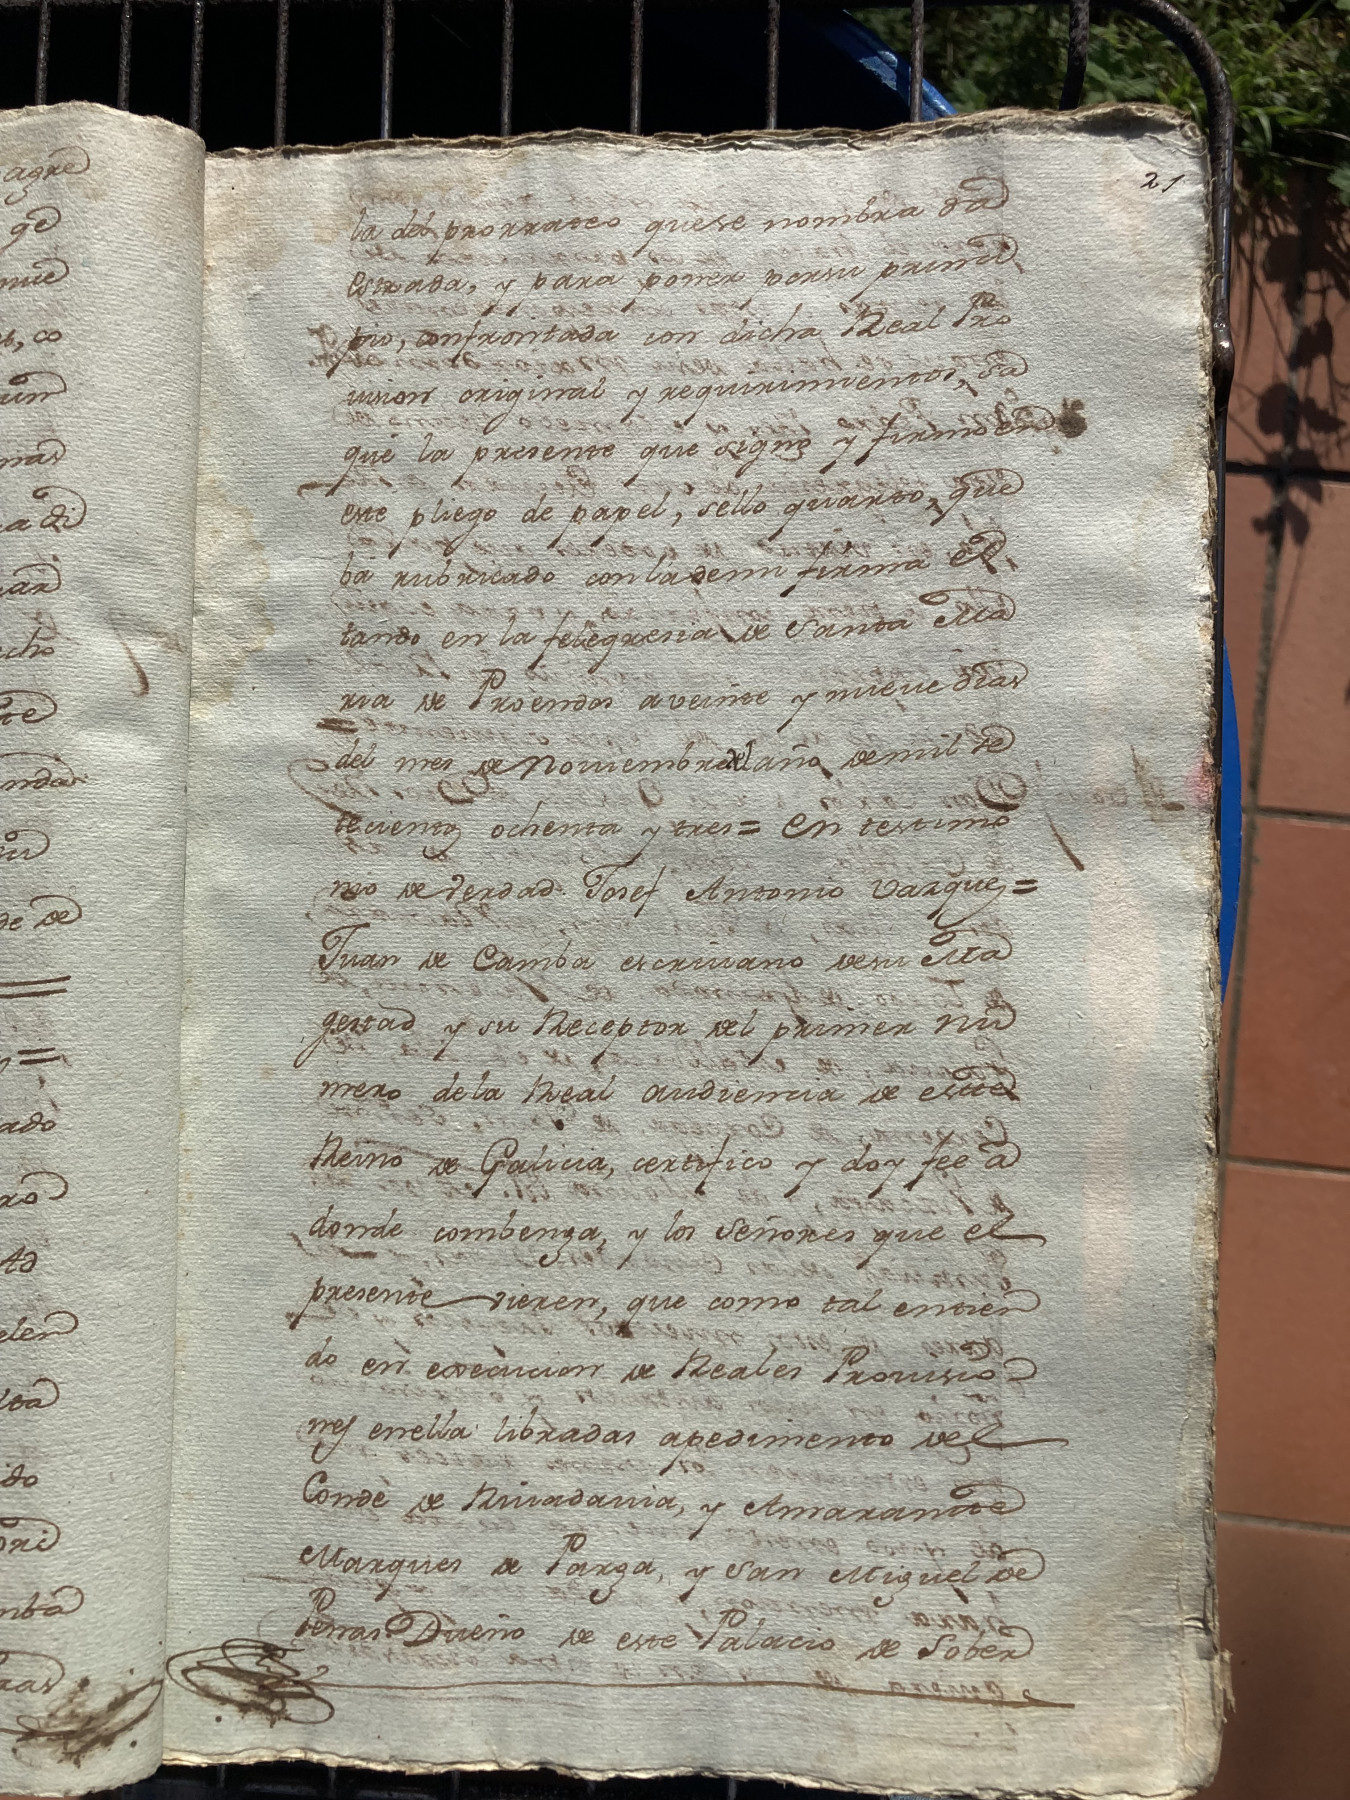 agre
ge
mue
s, co
un
mas
a di
ar
cho
te
ndas
su
de de
n=
ado
ro
to
elen
lta
ido
ori
mba
ras
21
la del prorrateo quese nombra da
estrada, y para poner porsu princi
pio, confrontada con dicha Real Pro
vision original y requirimientos, sa
que la presente que signo y firmo en
este pliego de papel, sello quarto, que
ba rubricado conlademi firma es
tando en la felegresia de Santa Ma
ria de Proendos a veinte y nueve dias
del mes de Noviembre del año de mil se
tecientos ochenta y tres= En testimo
nio de verdad Josef Antonio Vazquez=
Juan de Camba escrivano desu Ma
gestad y su Receptor del primer nu
mero dela Real audiencia de este
Reino de Galicia, certifico y doy fee a
donde combenga, y los Señores que el
presente vieren, que como tal entien
do en execucion de Reales Provisio
nes enella libradas apedimento del
Conde de Rivadavia, y Amarante
Marques de Parga, y San Miguel de
Penas Dueño de este Palacio de Sober